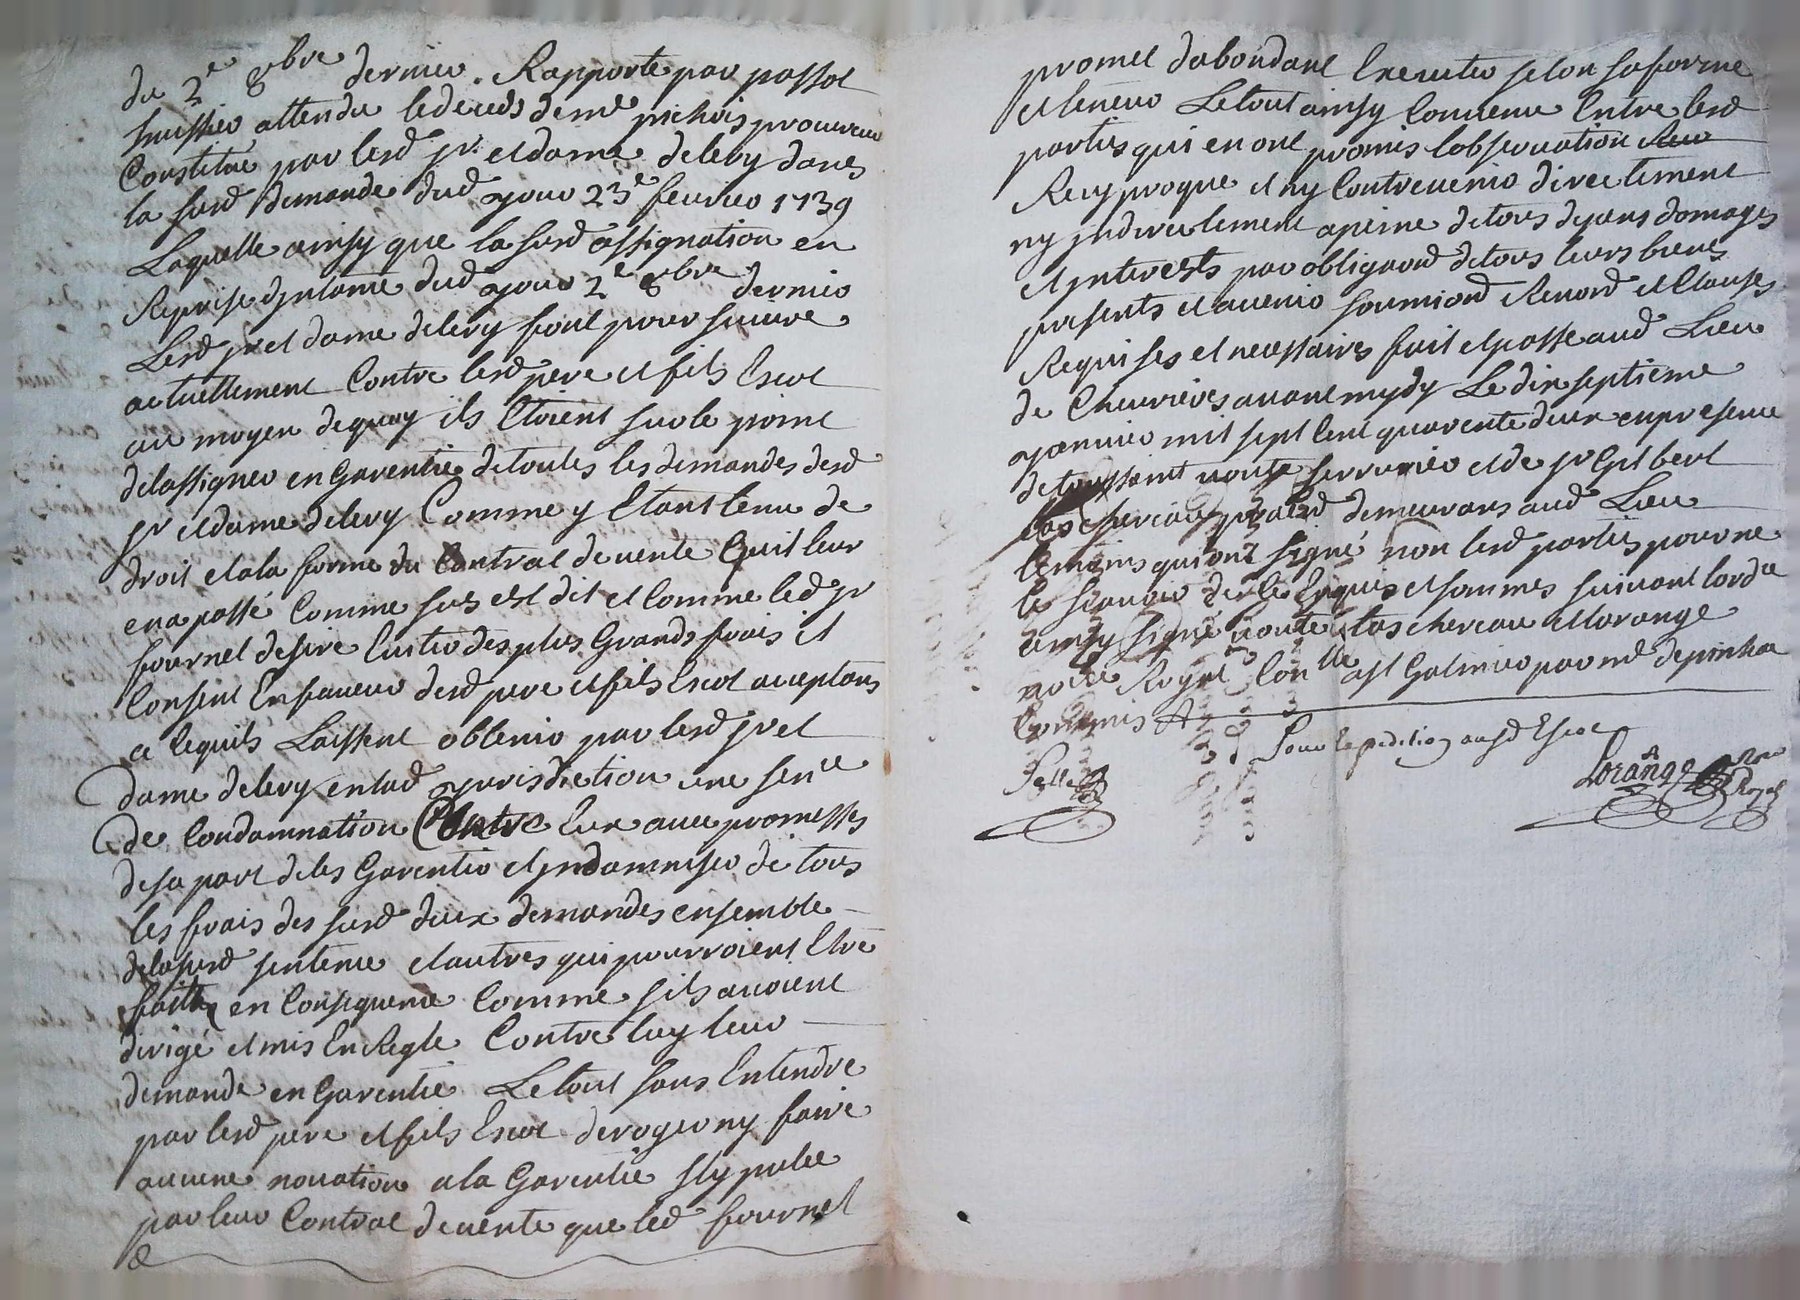 du 2e 8bre dernier. Rapporté par passot
huissier attendu le deceds de me pichois procureur
Constitué par lesd sr. et dame delevy dans
la susd demande dud jour 23e feuvrier 1739
Laquelle ainsy que la susd assignation en
Reprise dinstance dud jour 2e 8bre dernier
Lesd sr et dame delevy font poursuivre
actuellement Contre lesd pere et fils Escot
au moyen dequoy ils Etoient sur le point
delassigner en Garentie detoutes les demandes desd
sr et dame delevy Comme y Etant tenu de
droit et ala forme du Contrat devente Quil leur
en a passé Comme sus est dit et Comme led sr
fournel desire Eviter des plus Grands frais il
Consent En faveur desd pere et fils Escot acceptans
a lequils Laissent obtenir par lesd sr et
dame delevy en lad jurisdiction une sence
de Condamnation Contre Eux avec promesses
de sa part deles Garentir et jndamniser de tous
les frais des susd deux demandes ensemble
delasusd sentence et autres qui pourroient Etre
faitte en Consequence Comme sils avoient
dirigé et mis En Regle Contre luy leur
demande en Garentie Le tout sans Entendre
par lesd pere et fils Escot deroger ny faire
aucune novation a la Garentie stypulee
par leur Contrat devente que led fournel
promet dabondant Executer selon sa forme
et teneur Le tout ainsy Convenu Entre lesd
parties qui en ont promis lobservation
Recyproque et ny Contrevenir directement
ny jndirectement apeine detous depans domages
et jnterests par obligaond detous leurs biens
presents et avenir soumiond Renond et Clauses
Requises et necessaires fait et passé aud Lieu
de Cheurieres avant mydy Le dix septieme
janvier mil sept Cent quarente deux en presence
detoussaint noute serrurier et de sr Gilbert
las Chereau demeurans aud Lieu
temoins qui ont signé non lesd parties pour ne
le sçavoir de les Enquis et sommes suivant lordce
ainsy signé noute las chereau et Lorange
nore Royal Conlle a st Galmier par me depinhac
Commis
Pour Expedition ausd Escot
Lorange nore Royal